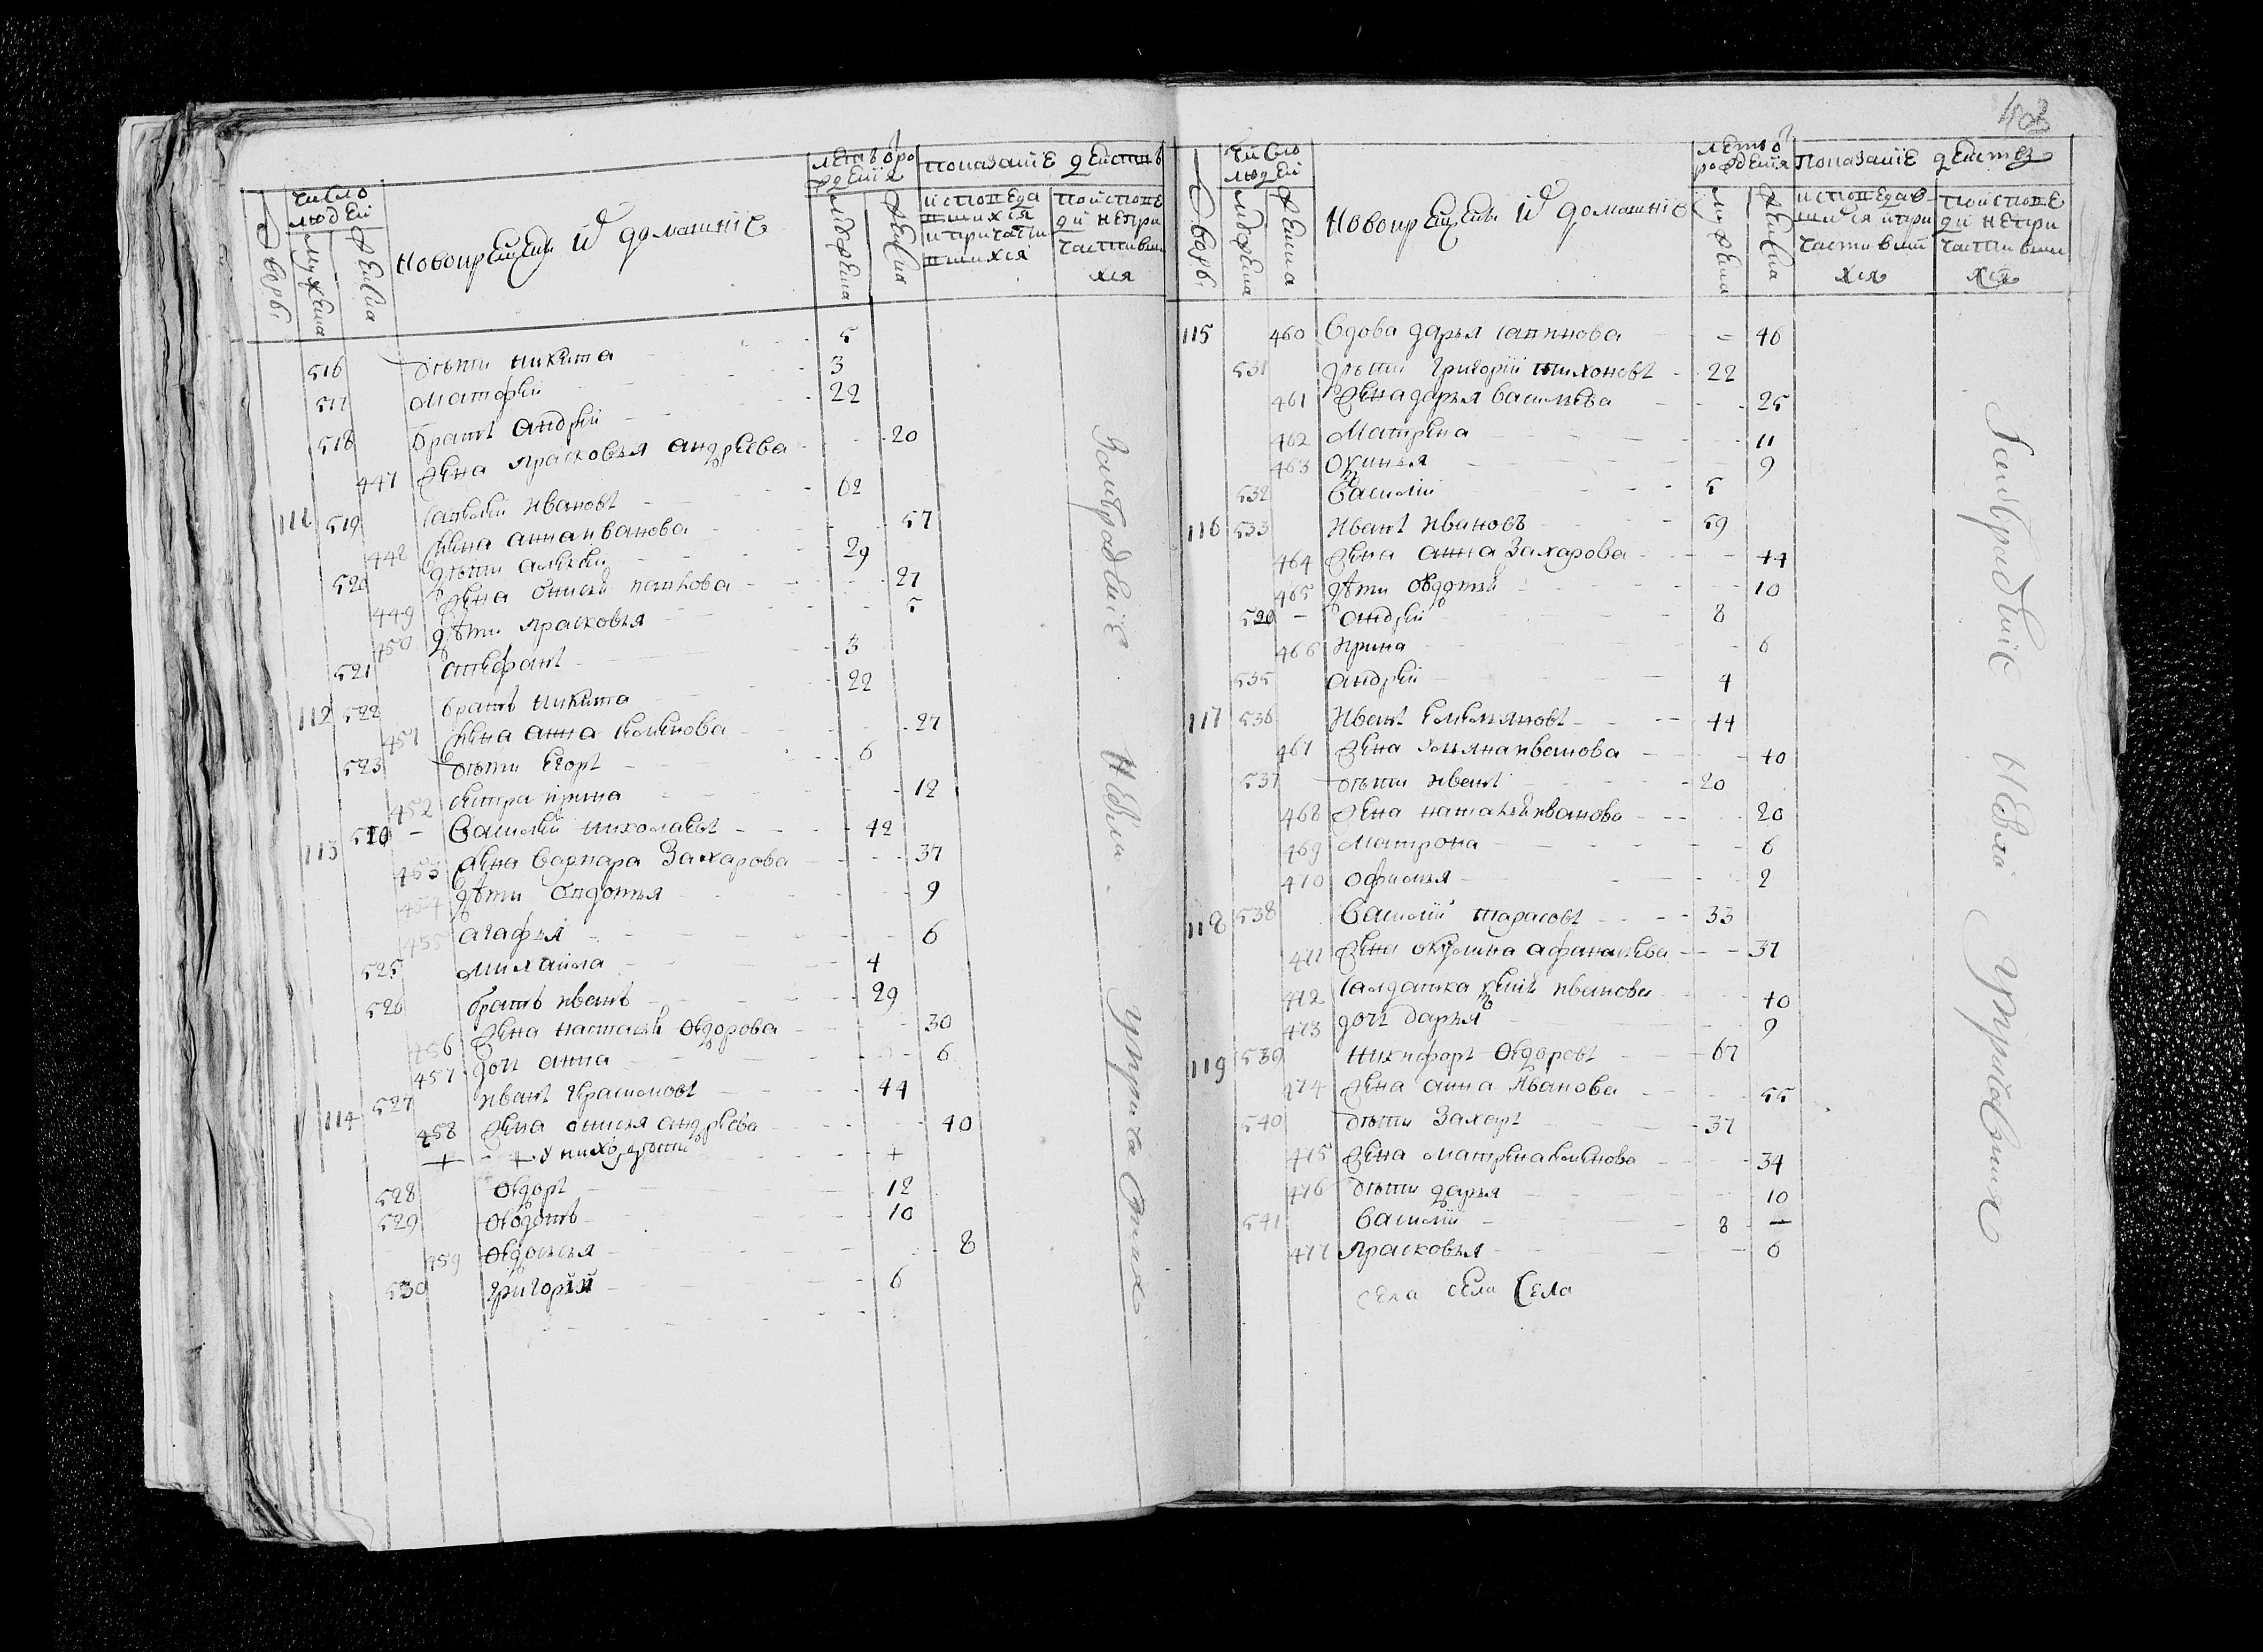 403
Дворы
Число людей
Мужеска
Женска
Новокрещены и домашние
лета от рождения
мужска
женска
Показание действъ
исповедавшихся и причастившихся
по исповеди не причастившихся
516 дѣти никита 5
517 матфей 3
518 братъ андрей 22
447 жена прасковья андреева 20
111 519 савелей ивановъ 62
448 жена анна иванова 57
520 дѣти алексей 29
449 жена 27
450 дѣти прасковья 5
521 3
112 522 братъ никита 22
451 жена анна семенова 27
523 дѣти егоръ 6
452 сестра ирина 12
113 василей николаевъ 42
453 жена варвара захарова 37
454 дѣти овдотья 9
455 агафья 6
525 михайла 4
526 братъ иванъ 29
456 жена настасья ѳедорова 30
457 дочь анна 6
114 527 иванъ 44
458 жена анисья андреева 40
+ + у нихъ дѣти +
528 ѳедоръ 12
529 ѳедотъ 10
459 ѳедосья 8
530 григорий 6
За нераденiе не были у причастия
Дворы
Число людей
Мужеска
Женска
Новокрещены и домашние
лета от рождения
мужска
женска
Показание действъ
исповедавшихся и причастившихся
по исповеди не причастившихся
115 460 вдова дарья 46
531 дѣти григорий тихоновъ 22
461 жена дарья васильева 25
462 матрена 11
463 9
532 василий 5
116 533 иванъ ивановъ 59
464 жена анна захарова 44
465 дѣти овдотья 10
андрей 8
466 ирина 6
535 андрей 4
117 536 иванъ емельяновъ 44
467 жена ульяна иванова 40
537 дѣти иванъ 20
468 жена наталья иванова 20
469 матрона 6
470 офимья 2
118 538 василий тарасовъ 33
471 жена окулина афанасьева 37
472 салдатка иванова 40
473 дочь дарья 9
119 539 никифоръ ѳедоровъ 67
474 жена анна иванова 55
540 дѣти захаръ 37
475 жена матрена семенова 34
476 дѣти дарья 10
541 василий 8
477 прасковья 6
села села села
За нераденiе не были у причастия